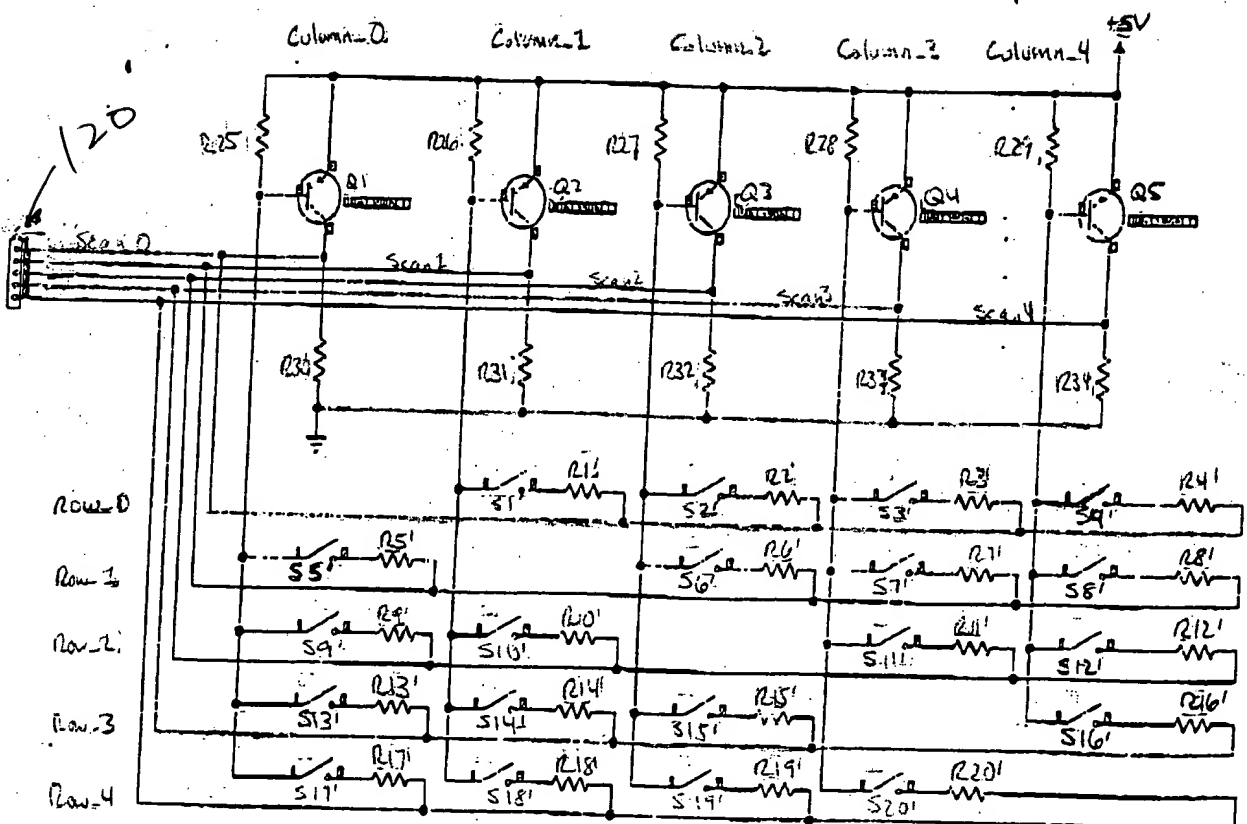 +5V
Column_0 Column_1 Column_2 Column_3 Column_4
120
R25 R26 R27 R28 R29
Q1 Q2 Q3 Q4 Q5
Scan0
Scan1
Scan2
Scan3
Scan4
R30 R31 R32 R33 R34
Row_0 S1' R1' S2' R2' S3' R3' S4' R4'
Row_1 S5' R5' S6' R6' S7' R7' S8' R8'
Row_2 S9' R9' S10' R10' S11' R11' S12' R12'
Row_3 S13' R13' S14' R14' S15' R15' S16' R16'
Row_4 S17' R17' S18' R18' S19' R19' S20' R20'